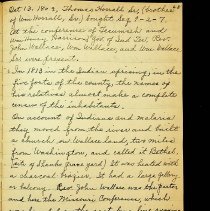 Oct 13, 1802, Thomas Horrall Sr. (brother
of Wm Horrall, Sr.) bought Seg 9-2-7.
At the conference of Tecumseh and
Gov. Ind. Terr. Rev.
John Wallace, Wm Wallace, and Wm Wallace
Sr. were present.
In 1813 in the Indian uprising, in the
five forts of the county, the names of
his relatives almost make a complete
census of the inhabitants.
On account of Indians and malaria
they moved from the river and built
a church on Wallace land, two miles
from Washington, and called it Bethel,
(site of Shanks grave yard) It was heated with
a charcoal brazier. It had a large gallery
or balcony. Rev. John Wallace was the pastor
and here the Missouri Conference, which